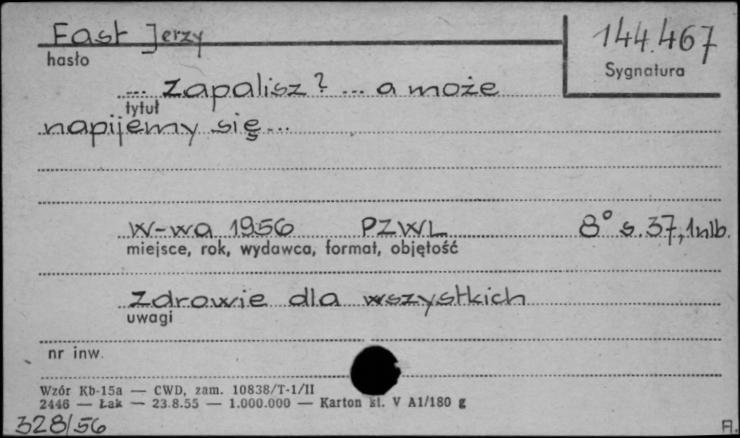 Fast Jerzy
144.467
hasło
Sygnatura
... Zapalisz? ... a może
tytuł
napijemy się...
W-wa 1956 PZWL 8° s. 37, 1 nlb.
miejsce, rok, wydawca, format, objętość
Zdrowie dla wszystkich
uwagi
nr inw.
Wzór Kb-15a — CWD, zam. 10838/T-1/II
2446 — Łak — 23.8.55 — 1.000.000 — Karton kl. V A1/180 g
328/56
A.